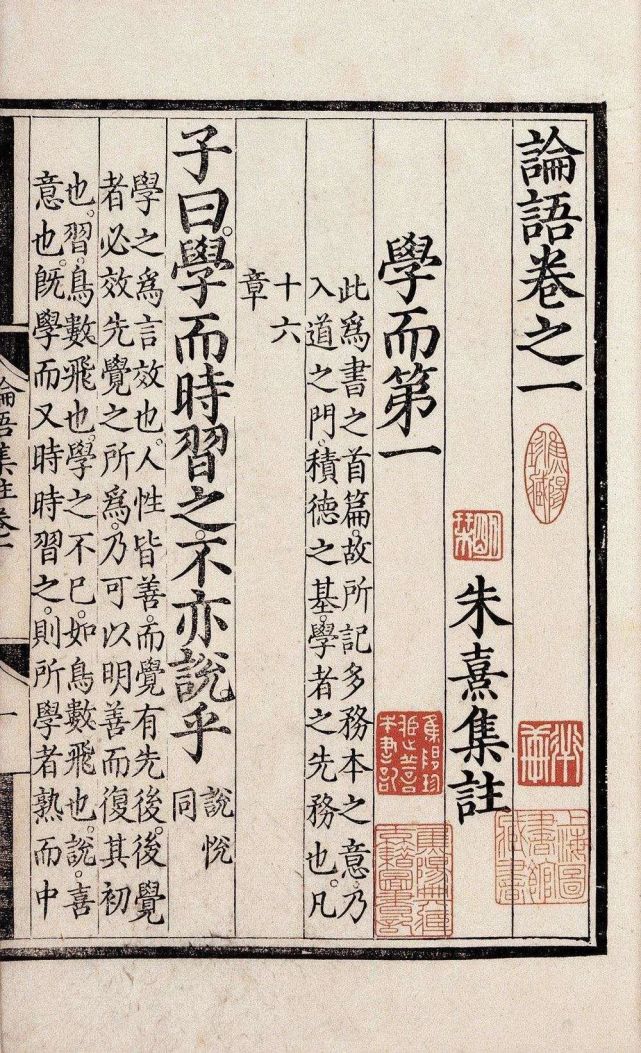 論語卷之一
朱熹集註
學而第一
此爲書之首篇。故所記多務本之意。乃
入道之門。積德之基。學者之先務也。凡
十六
章
子曰。學而時習之。不亦說乎
說悅
同
學之爲言效也。人性皆善。而覺有先後。後覺
者必效先覺之所爲。乃可以明善而復其初
也。習。鳥數飛也。學之不已。如鳥數飛也。說。喜
意也。旣學而又時時習之。則所學者熟而中
論語集註卷一
一
上海圖書館藏書